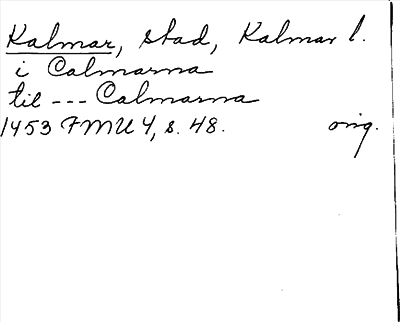 Kalmar, stad, Kalmar l.
i Calmarna
til --- Calmarna
1453 FMU 4, s. 48. orig.